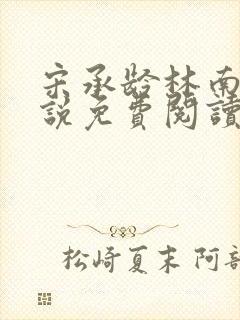 宋承龄林南
説免費閱讀
松崎夏末 阿部